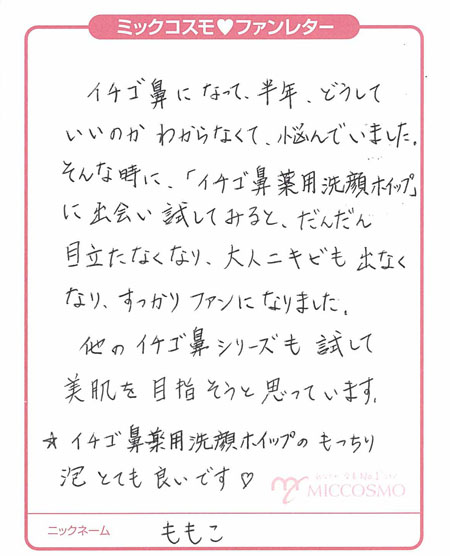 ミックコスモ♥ファンレター
イチゴ鼻になって、半年、どうして
いいのかわからなくて、悩んでいました。
そんな時に、「イチゴ鼻薬用洗顔ホイップ」
に出会い試してみると、だんだん
目立たなくなり、大人ニキビも出なく
なり、すっかりファンになりました。
他のイチゴ鼻シリーズも試して
美肌を目指そうと思っています。
☆イチゴ鼻薬用洗顔ホイップのもっちり
泡とても良いです♡
MICCOSMO
ニックネーム ももこ